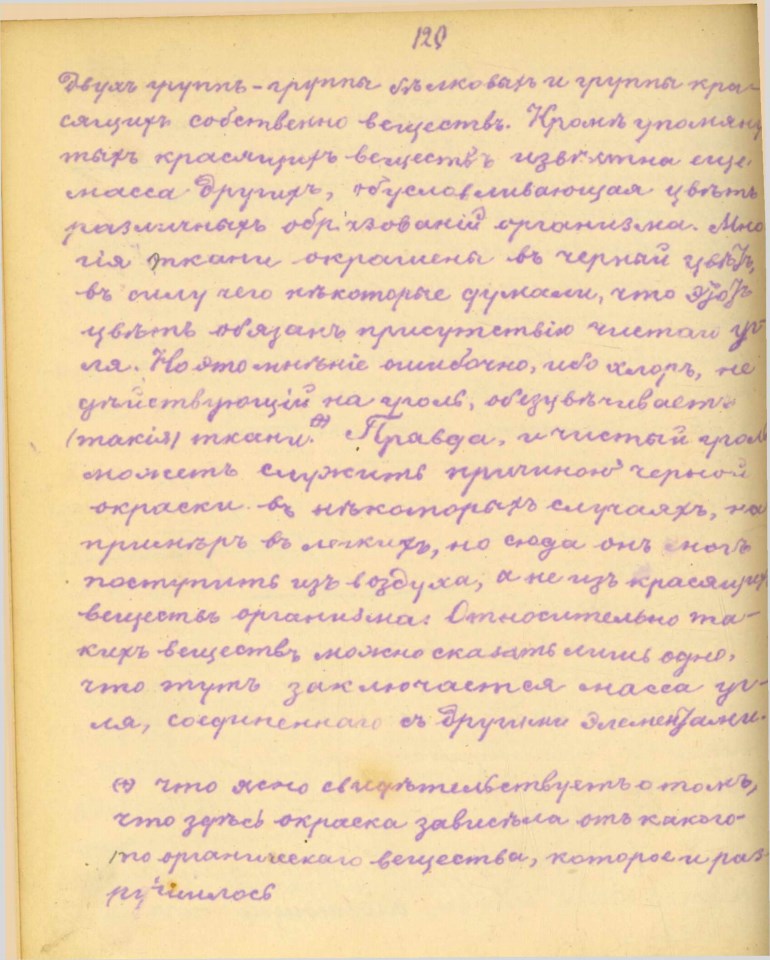 120
Двухъ группъ - группы бѣлковыхъ и группы кра-
сящихъ собственно веществъ. Кромѣ упомяну
тыхъ красящихъ веществъ извѣстна еще
масса другихъ, обусловливающая цвѣтъ
различныхъ образованій организма. Мно
гія ткани окрашены въ черный цвѣтъ,
въ силу чего нѣкоторые думали, что этотъ
цвѣтъ обязанъ присутствію чистаго уг-
ля. Но это мнѣніе ошибочно, ибо хлоръ, не
дѣйствующій на уголь, обезцвѣчиваетъ
(такія) ткани. (+) Правда, и чистый уголь
можетъ служить причиною черной
окраски въ нѣкоторыхъ случаяхъ, на
примѣръ въ легкихъ, но сюда онъ могъ
поступить изъ воздуха, а не изъ красящихъ
веществъ организма. Относительно та-
кихъ веществъ можно сказать лишь одно,
что тутъ заключается масса уг-
ля, соединеннаго съ другими элементами.
(+) что ясно свидѣтельствуетъ о томъ,
что здѣсь окраска зависѣла отъ какого-
то органическаго вещества, которое и раз
рушилось